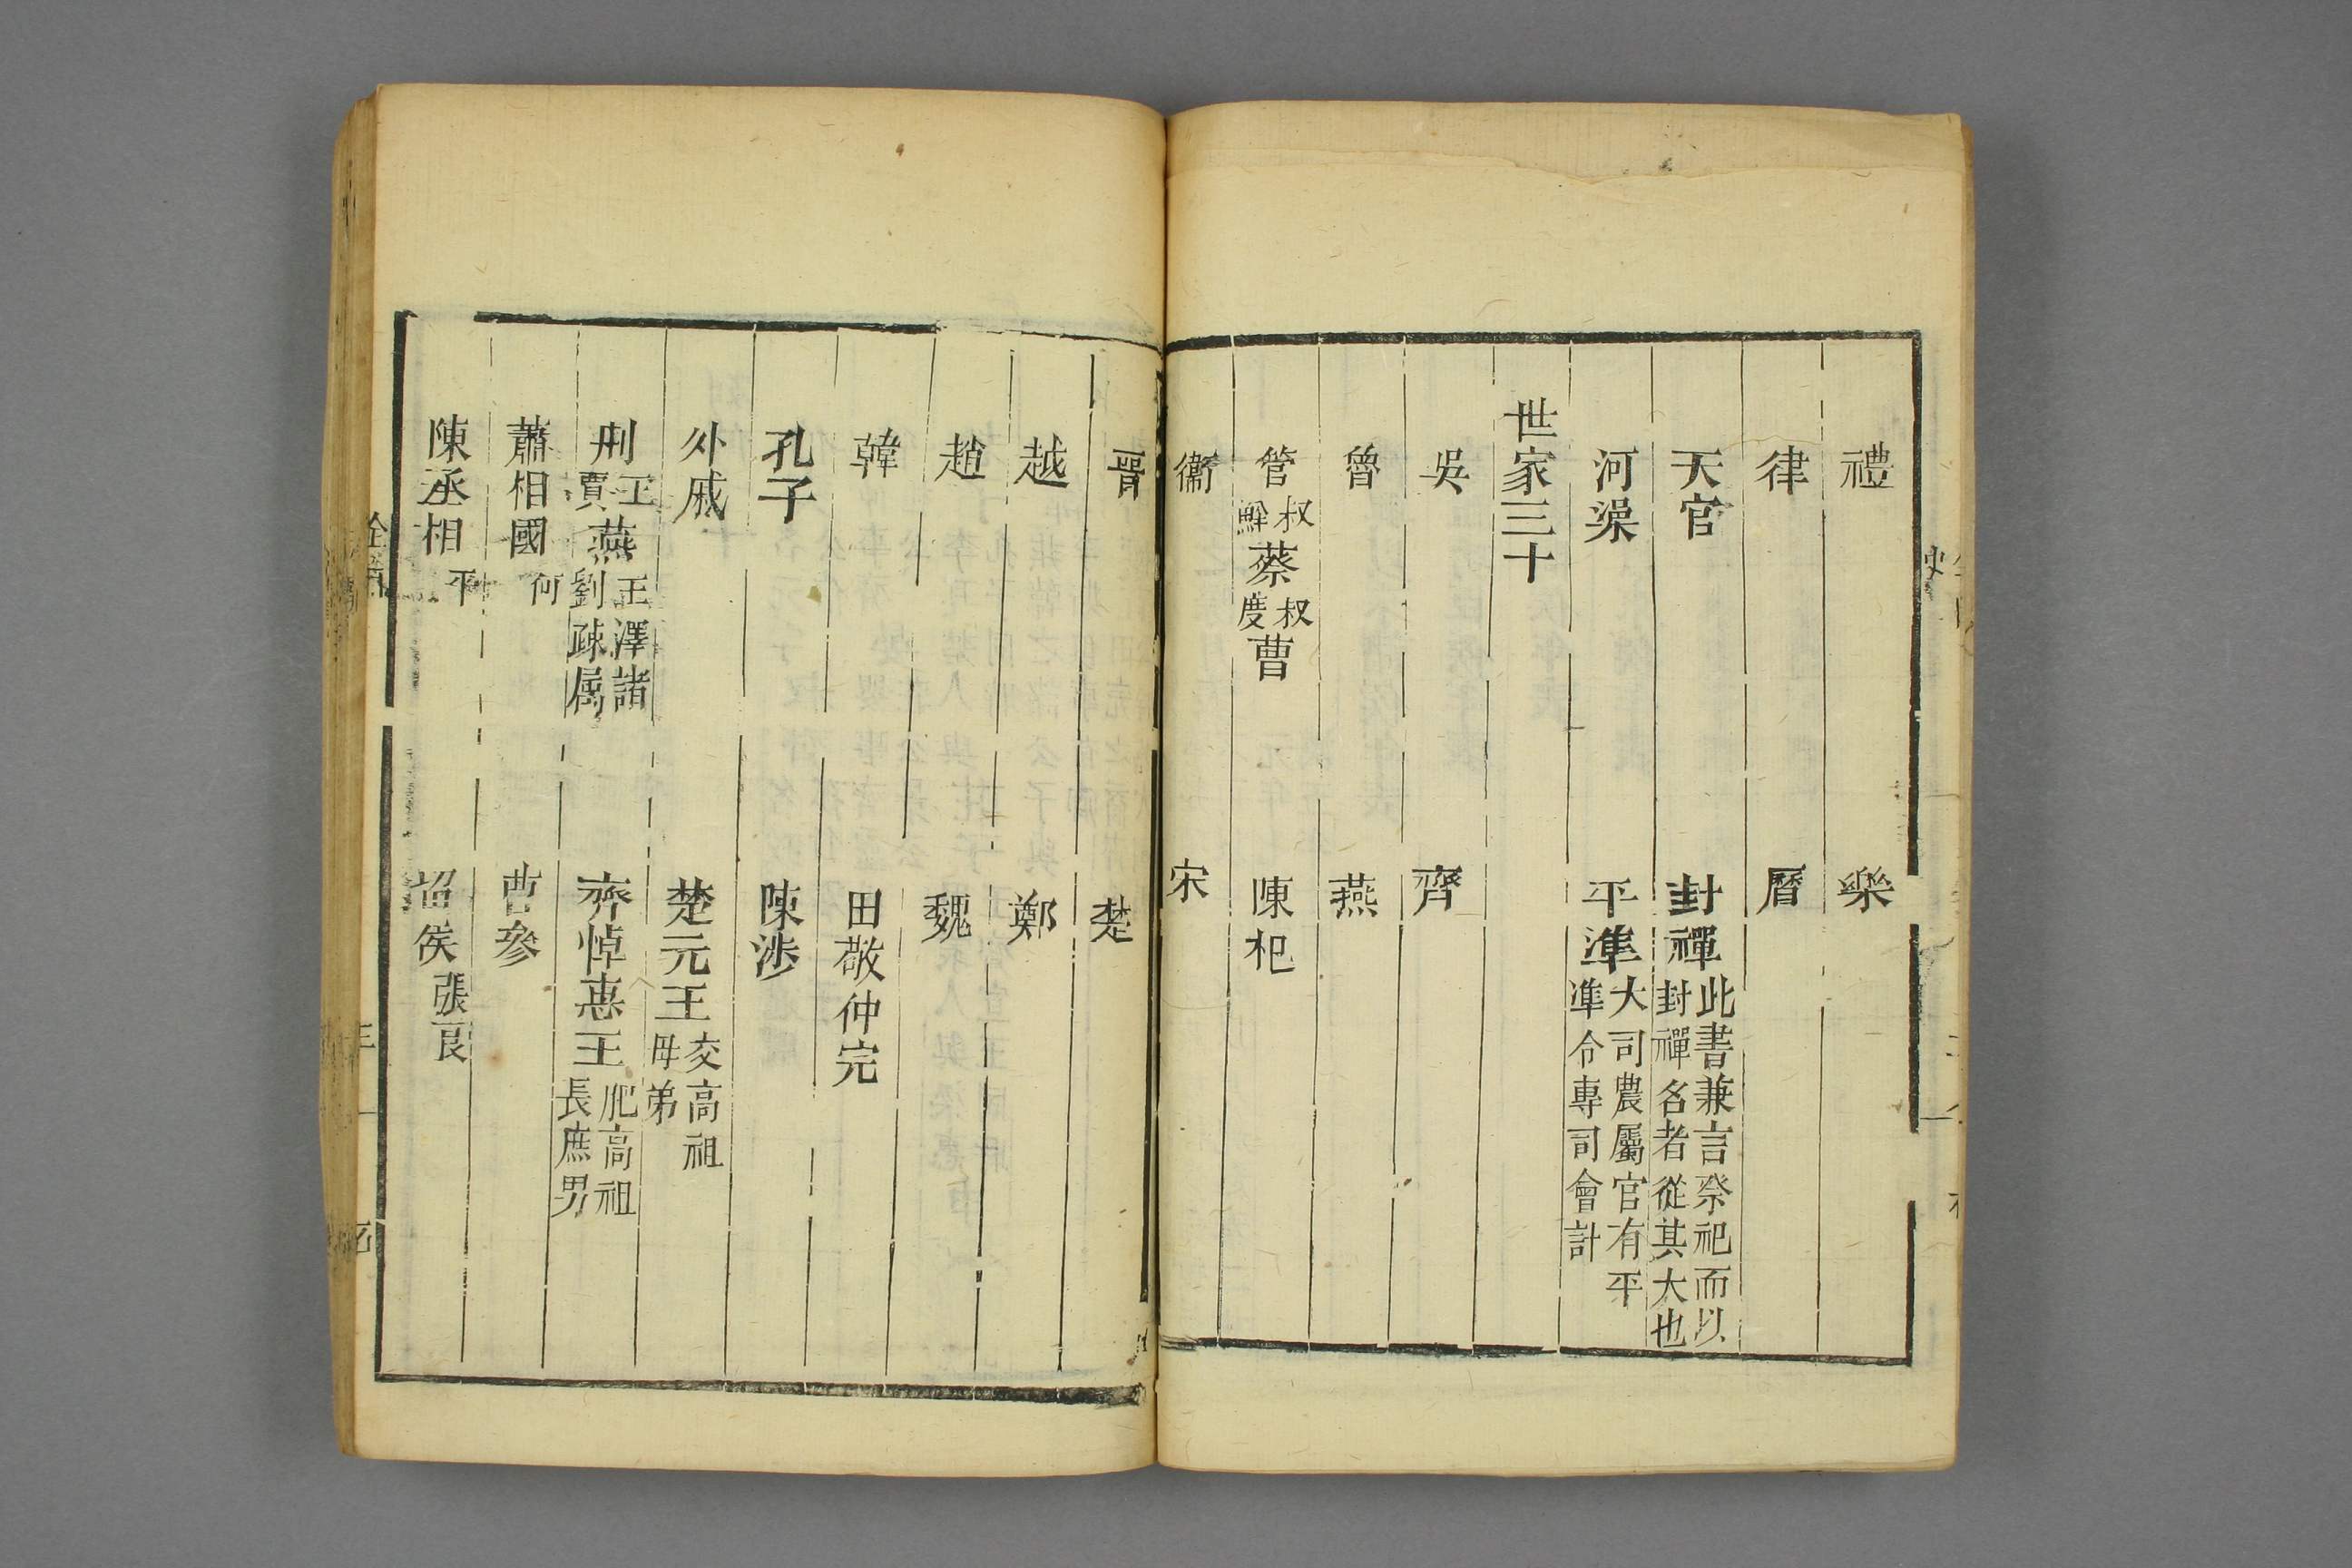 禮 樂
律 曆
天官 封禪 此書兼言祭祀而以封禪名者從其大也
河渠 平準 大司農屬官有平準令專司會計
世家三十
吳 齊
魯 燕
管 叔鮮 蔡 叔度 曹 陳 杞
衞 宋
晉 楚
越 鄭
趙 魏
韓 田敬仲完
孔子 陳涉
外戚 楚元王 交高祖母弟
荆 王賈 燕 王澤諸劉疎属 齊悼惠王 肥高祖長庶男
蕭相國 何 曹參
陳丞相 平 留侯 張良